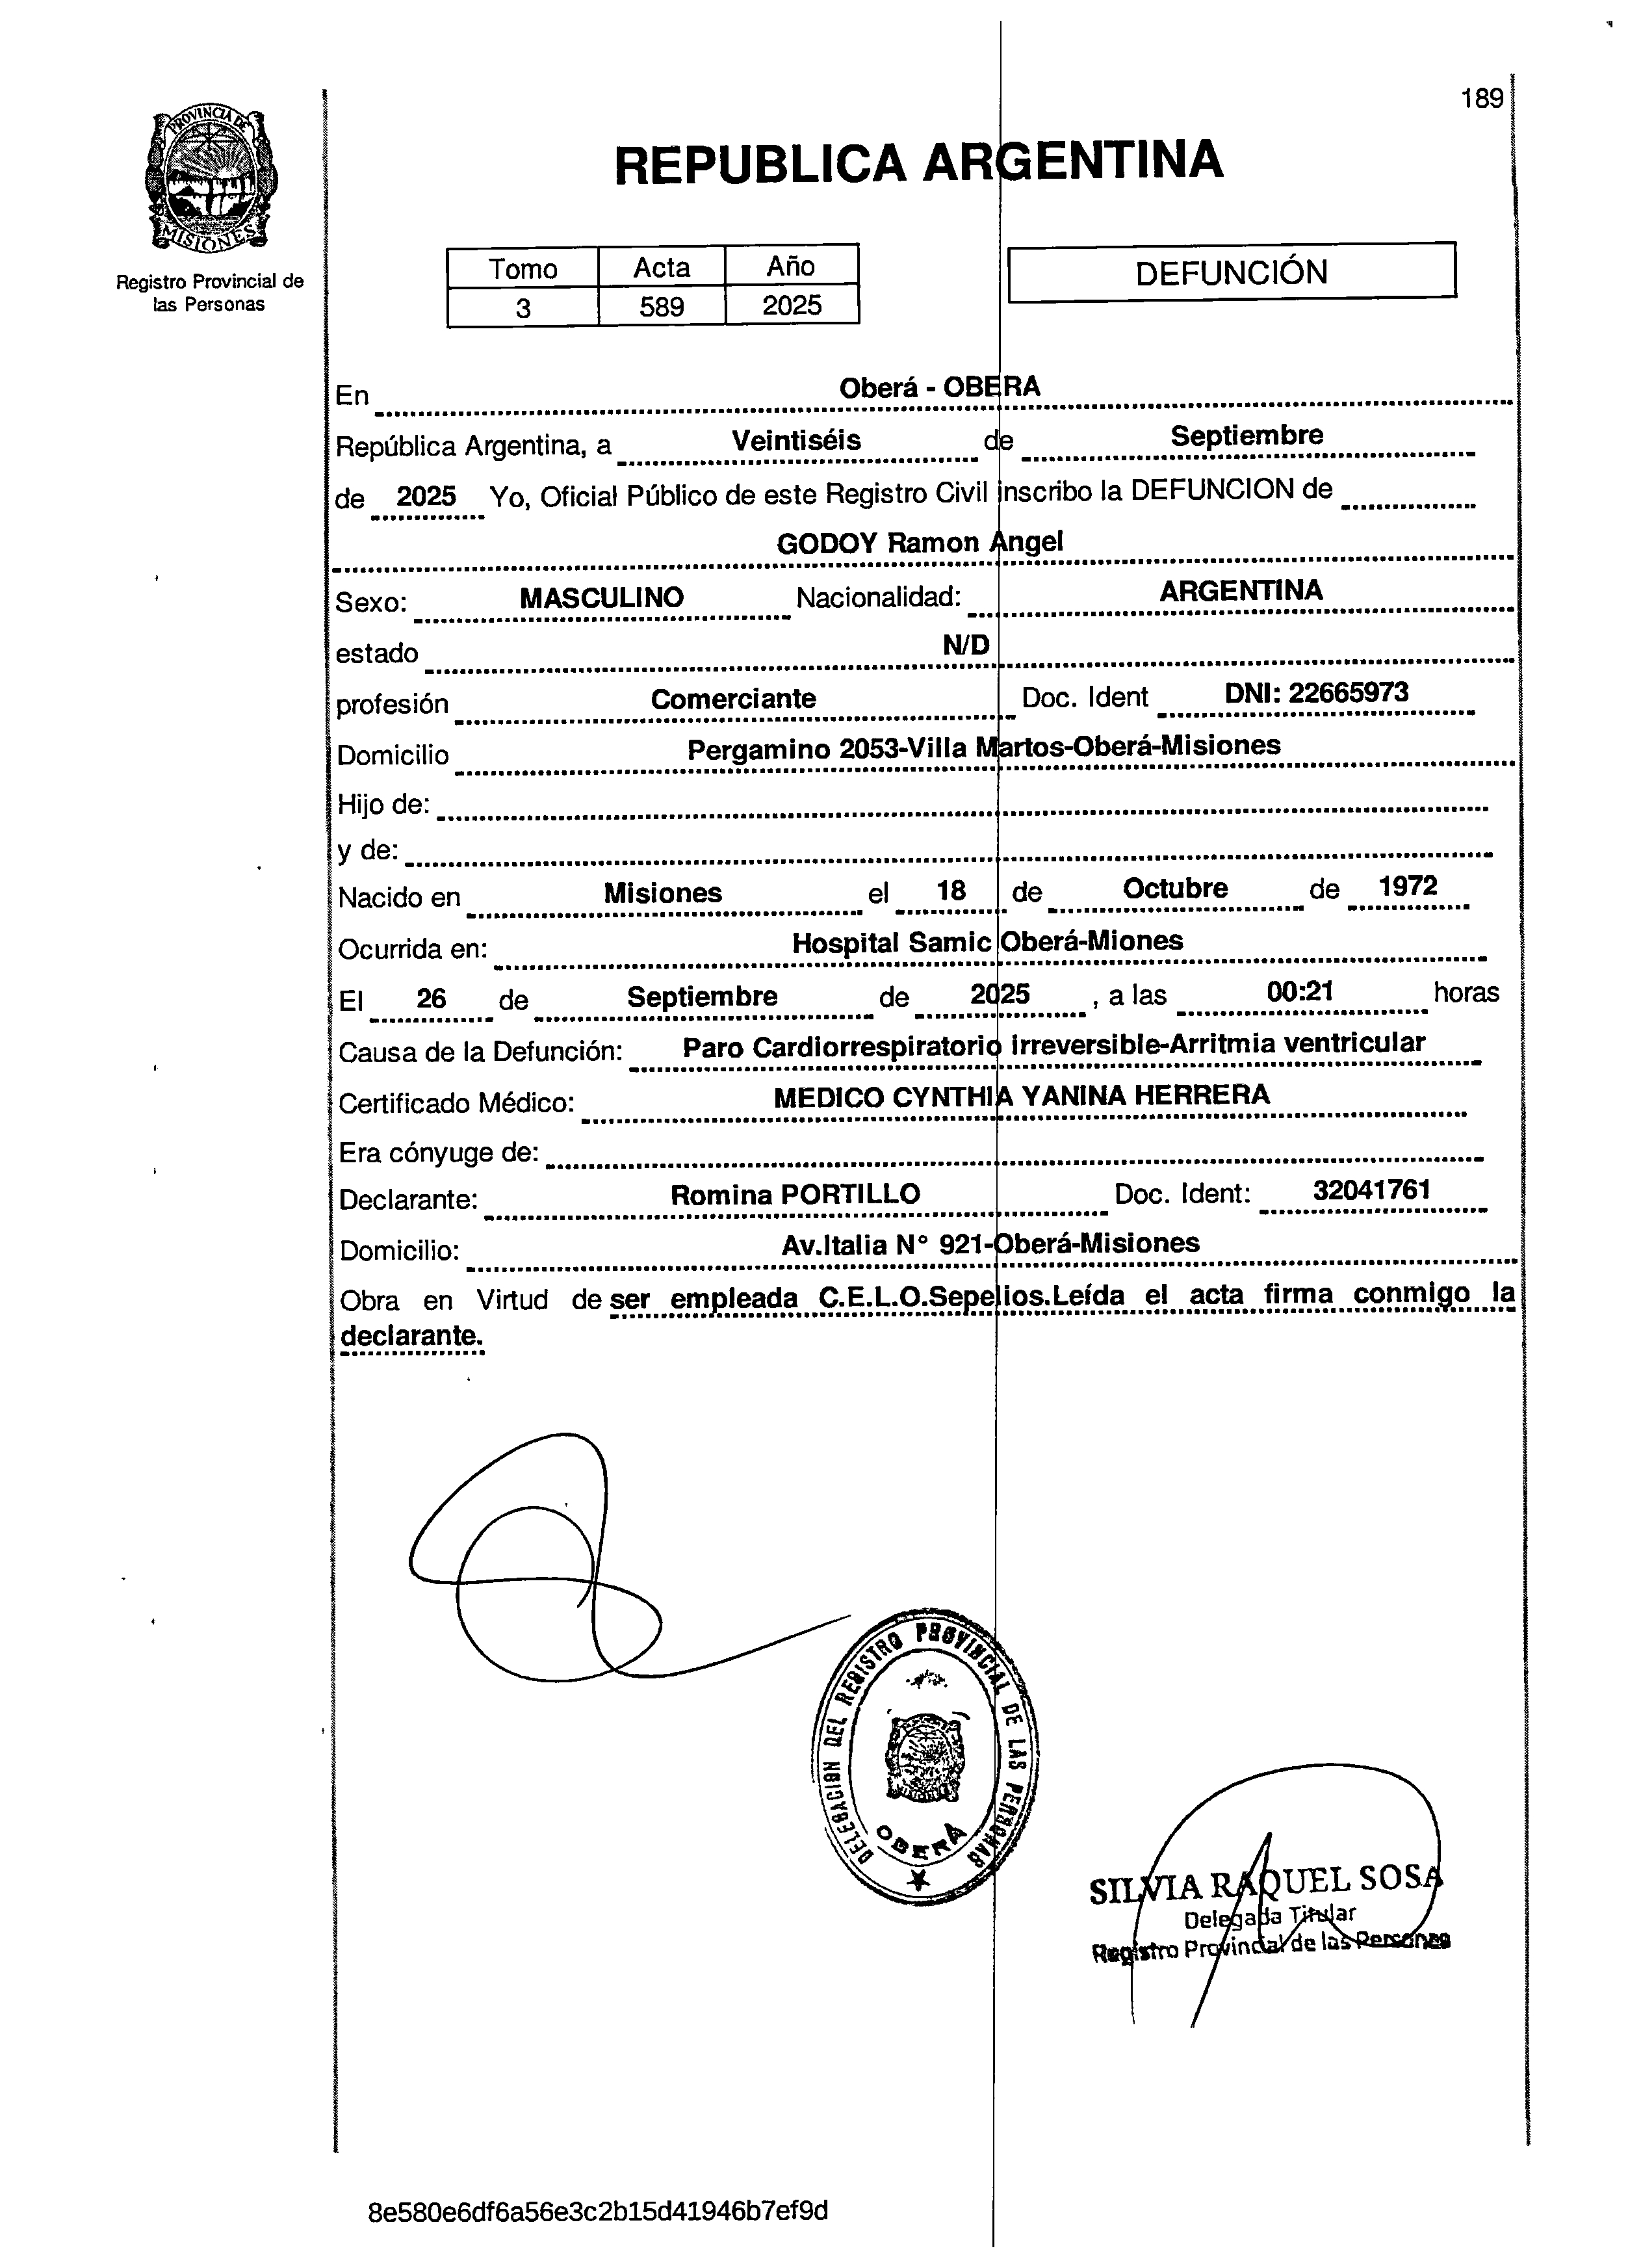 189
PROVINCIA DE
MISIONES
Registro Provincial de
las Personas
REPUBLICA ARGENTINA
Tomo Acta Año
3 589 2025
DEFUNCIÓN
En Oberá - OBERA
República Argentina, a Veintiséis de Septiembre
de 2025 Yo, Oficial Público de este Registro Civil inscribo la DEFUNCION de
GODOY Ramon Angel
Sexo: MASCULINO Nacionalidad: ARGENTINA
estado N/D
profesión Comerciante Doc. Ident DNI: 22665973
Domicilio Pergamino 2053-Villa Martos-Oberá-Misiones
Hijo de:
y de:
Nacido en Misiones el 18 de Octubre de 1972
Ocurrida en: Hospital Samic Oberá-Miones
El 26 de Septiembre de 2025 , a las 00:21 horas
Causa de la Defunción: Paro Cardiorrespiratorio irreversible-Arritmia ventricular
Certificado Médico: MEDICO CYNTHIA YANINA HERRERA
Era cónyuge de:
Declarante: Romina PORTILLO Doc. Ident: 32041761
Domicilio: Av.Italia N° 921-Oberá-Misiones
Obra en Virtud de ser empleada C.E.L.O.Sepelios.Leída el acta firma conmigo la
declarante.
DELEGACION DEL REGISTRO PROVINCIAL DE LAS PERSONAS
OBERÁ
SILVIA RAQUEL SOSA
Delegada Titular
Registro Provincial de las Personas
8e580e6df6a56e3c2b15d41946b7ef9d